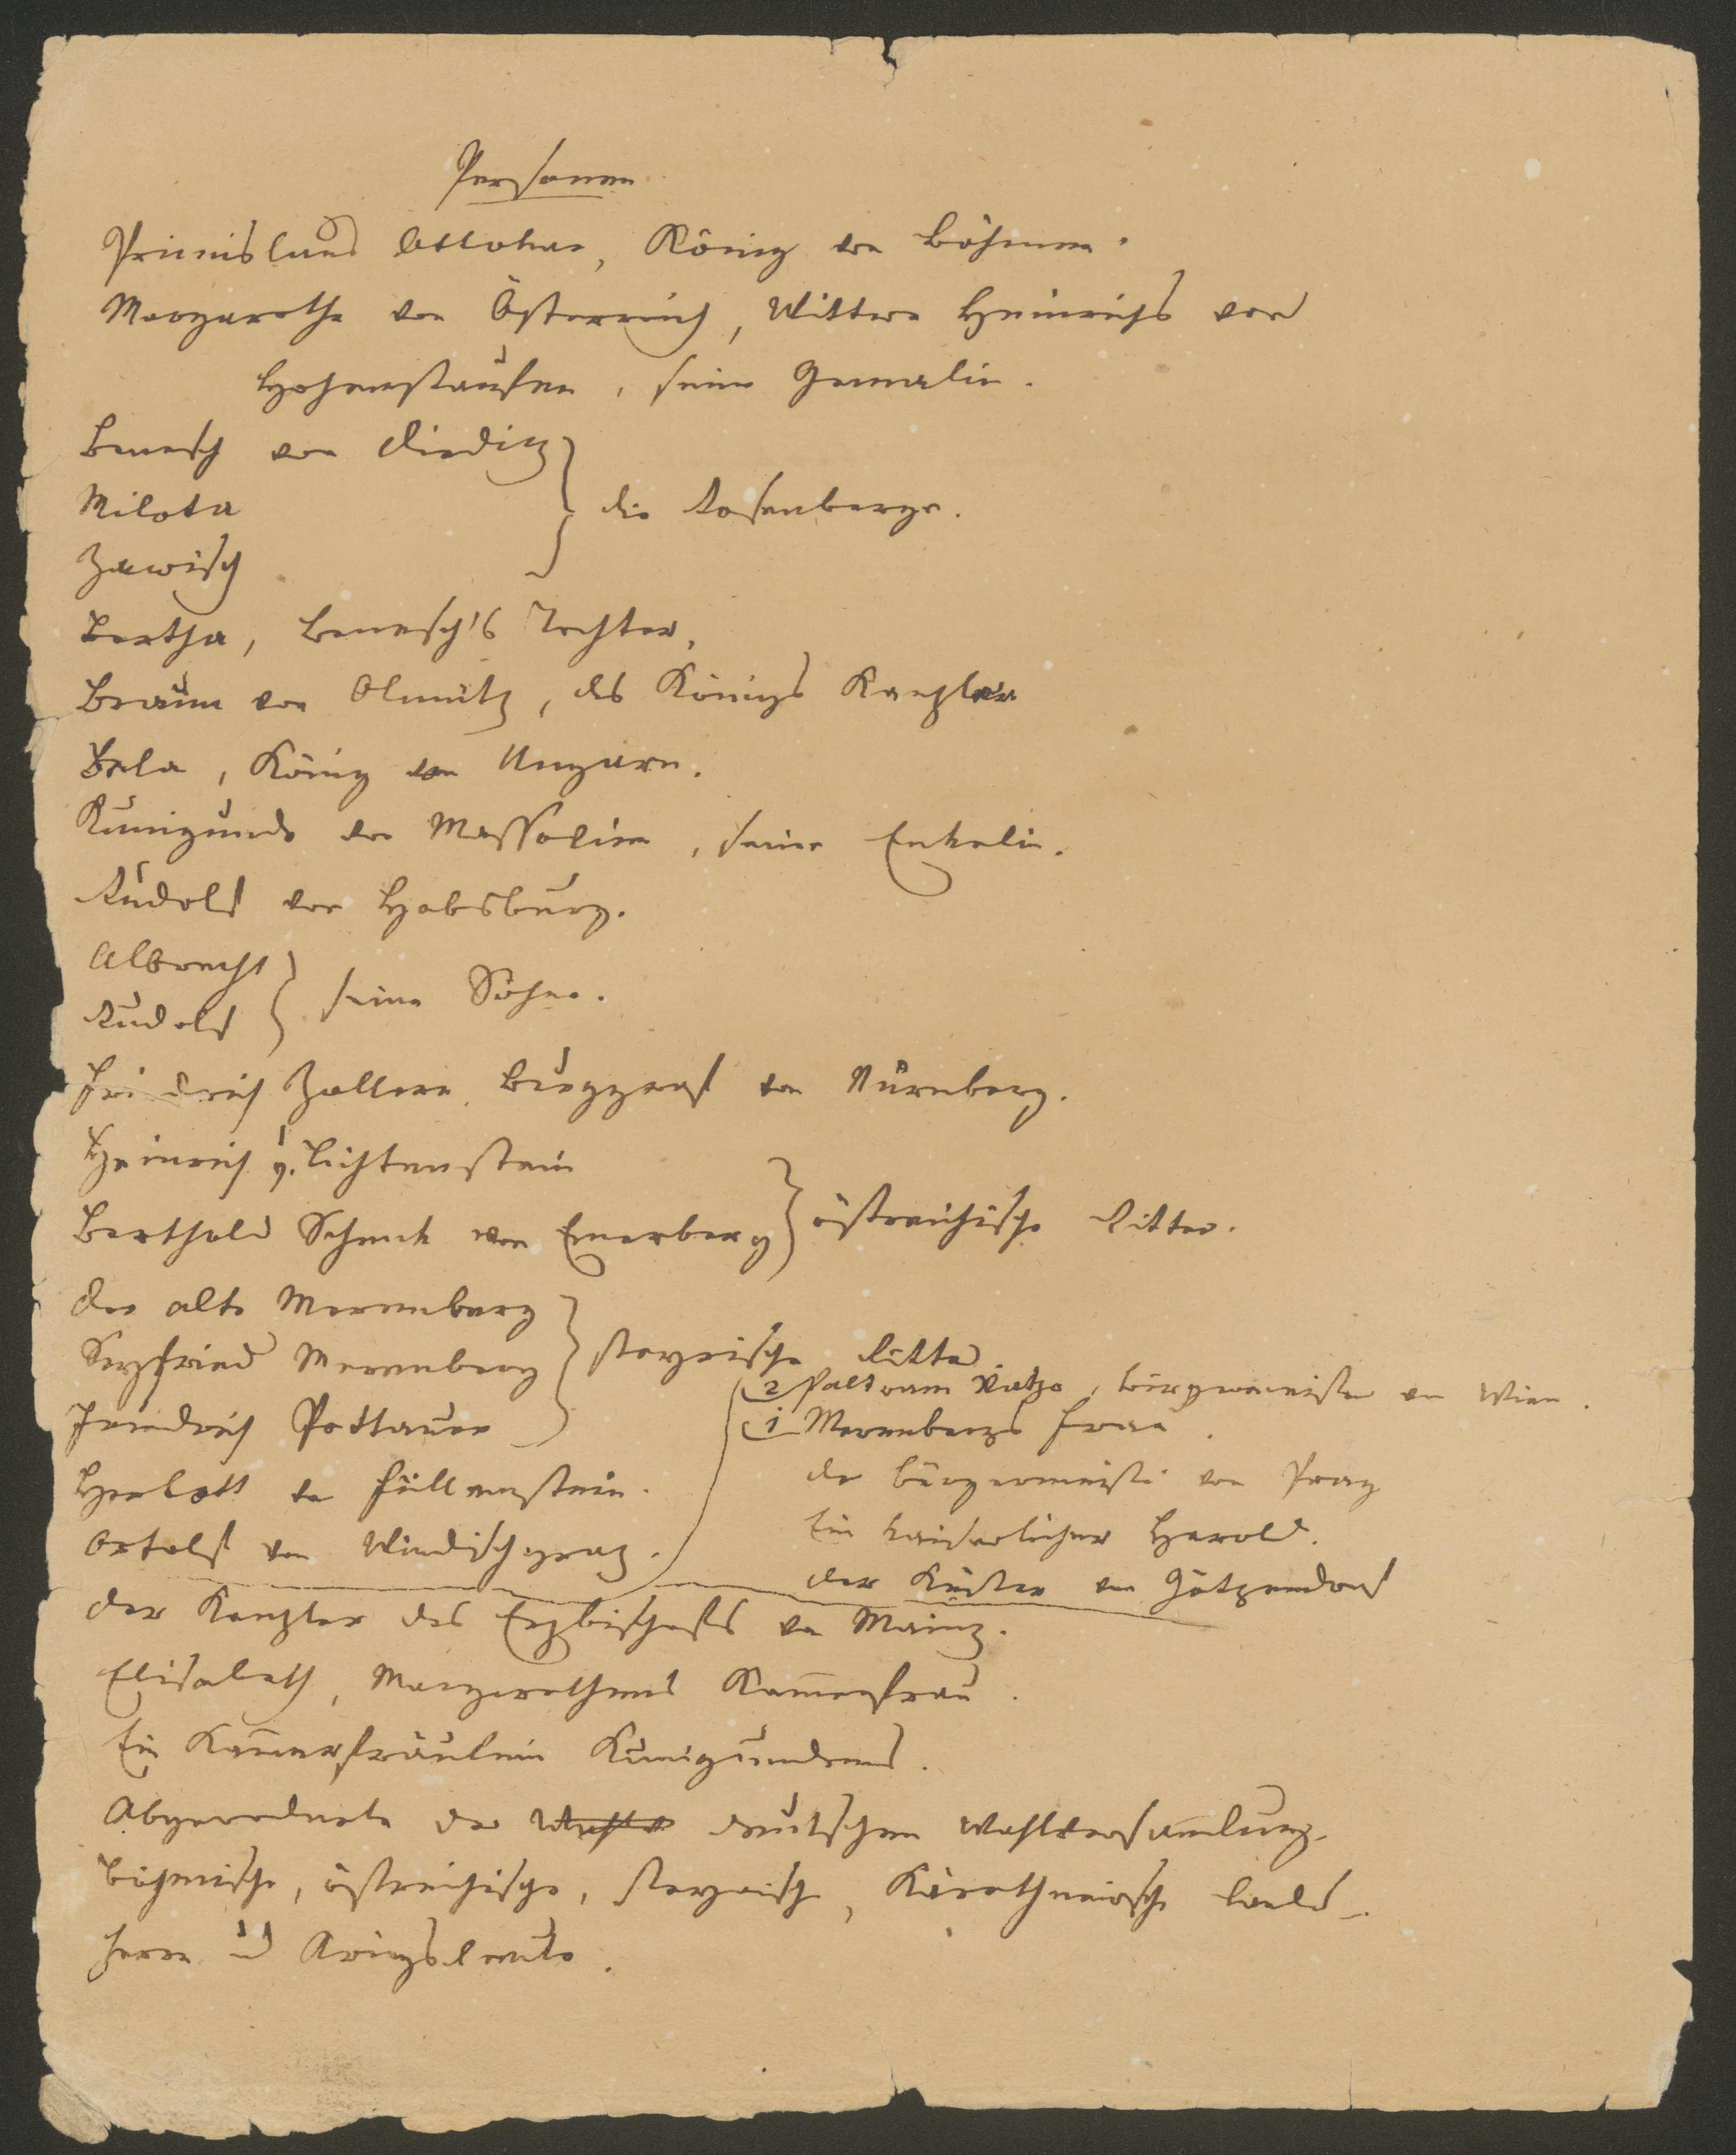 Personen
Primislaus Ottokar, König von Böhmen.
Margarethe von Österreich, Wittwe Heinrichs von
Hohenstaufen, seine Gemalin.
Benesch von Dieditz
Milota
Zawisch
} die Rosenberge.
Bertha, Benesch's Tochter,
Braun von Olmütz, des Königs Kanzler
Bela, König von Ungarn.
Kunigunde von Massovien, seine Enkelin.
Rudolf von Habsburg.
Albrecht
Rudolf
} seine Söhne.
Friedrich Zollern, Burggraf von Nürnberg.
Heinrich v. Lichtenstein
Berthold Schenk von Emerberg
} östreichische Ritter.
Der alte Merenberg
Seyfried Merenberg
Friedrich Pettauer
} steyrische Ritter
Herbott von Füllenstein.
Ortolf von Windischgraz.
2 Paltram Vatzo, Bürgermeister von Wien.
1 Merenbergs Frau.
Der Bürgermeister von Prag
Ein kaiserlicher Herold.
Der Küster von Götzendorf
Der Kanzler des Erzbischofs von Mainz.
Elisabeth, Margarethens Kam̄erfrau.
Ein Kam̄erfräulein Kunigundens.
Abgeordnete der deutschen Wahlversam̄lung.
Böhmische, östreichische, steyrische, Kärnthnerische Lands-
herrn und Kriegsleute.